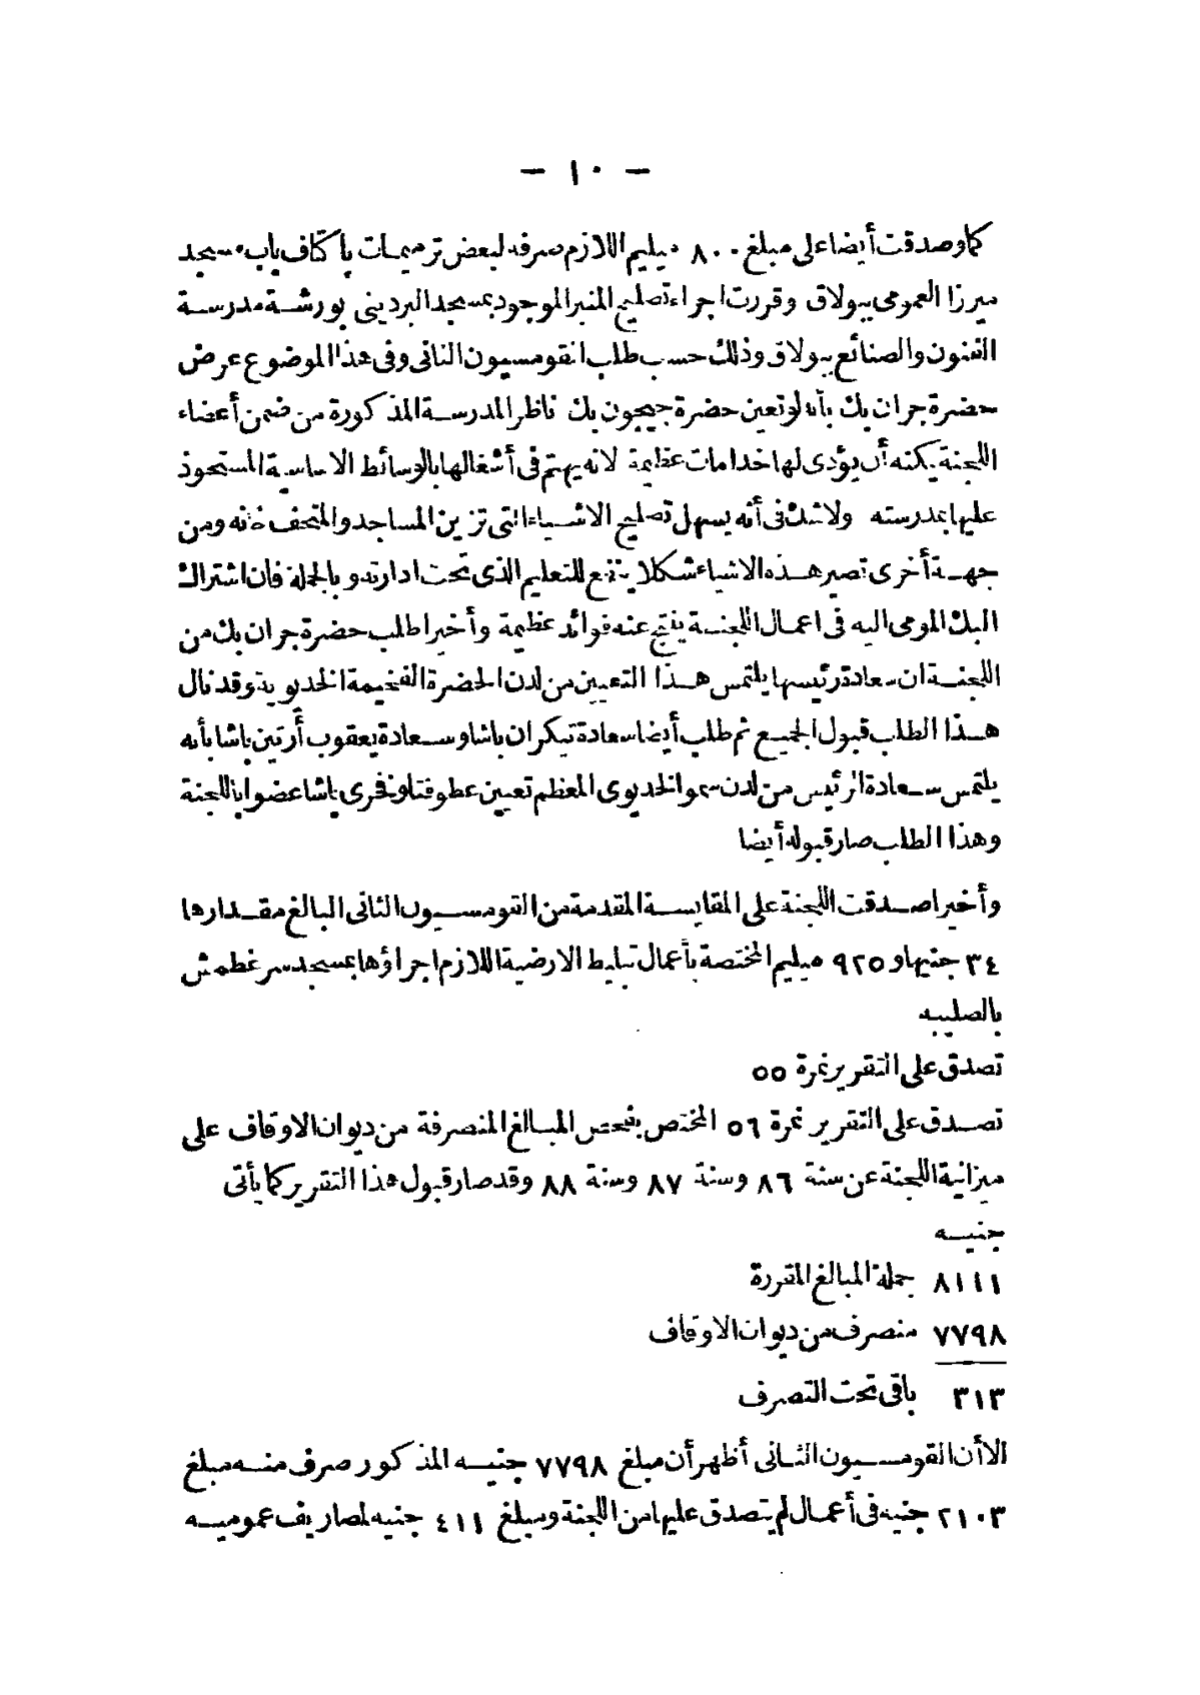 — ١٠ —
كما وصدقت أيضا على مبلغ ٨٠٠ ميليم اللازم صرفه لبعض ترميمات بأكتاف باب مسجد
ميرزا العمومى ببولاق وقررت اجراء تصليح المنبر الموجود بمسجد البردينى بورشة مدرسة
الفنون والصنائع ببولاق وذلك حسب طلب القومسيون الثانى وفى هذا الموضوع عرض
حضرة جران بك بأنه لو تعين حضرة جيجون بك ناظر المدرسة المذكورة من ضمن أعضاء
اللجنة يمكنه أن يؤدى لها خدامات عظيمة لانه يهتم فى أشغالها بالوسائط الاساسية المستحوذ
عليها بمدرسته ولا شك فى أنه يسهل تصليح الاشياء التى تزين المساجد والمتحف خانه ومن
جهة أخرى تصير هذه الاشياء شكلا ينتفع للتعليم الذى تحت ادارته وبالجملة فان اشتراك
البك المومى اليه فى اعمال اللجنة ينتج عنه فوائد عظيمة وأخيرا طلب حضرة جران بك من
اللجنة ان سعادة رئيسها يلتمس هذا التعيين من لدن الحضرة الفخيمة الخديوية وقد نال
هذا الطلب قبول الجميع ثم طلب أيضا سعادة تيكران باشا وسعادة يعقوب أرتين باشا بأنه
يلتمس سعادة الرئيس من لدن سمو الخديوى المعظم تعيين عطوفتلو فخرى باشا عضوا باللجنة
وهذا الطلب صار قبوله أيضا
وأخيرا صدقت اللجنة على المقايسة المقدمة من القومسيون الثانى البالغ مقدارها
٣٤ جنيها و ٩٢٥ ميليم المختصة بأعمال تبليط الارضية اللازم اجراؤها بمسجد سرغطمش
بالصليبه
تصدق على التقرير نمرة ٥٥
تصدق على التقرير نمرة ٥٦ المختص بفحص المبالغ المنصرفة من ديوان الاوقاف على
ميزانية اللجنة عن سنة ٨٦ وسنة ٨٧ وسنة ٨٨ وقد صار قبول هذا التقرير كما يأتى
جنيه
٨١١١ جملة المبالغ المقررة
٧٧٩٨ منصرف من ديوان الاوقاف
٣١٣ باقى تحت التصرف
الا أن القومسيون الثانى أظهر أن مبلغ ٧٧٩٨ جنيه المذكور صرف منه مبلغ
٢١٠٣ جنيه فى أعمال لم يتصدق عليها من اللجنة ومبلغ ٤١١ جنيه لمصاريف عموميه